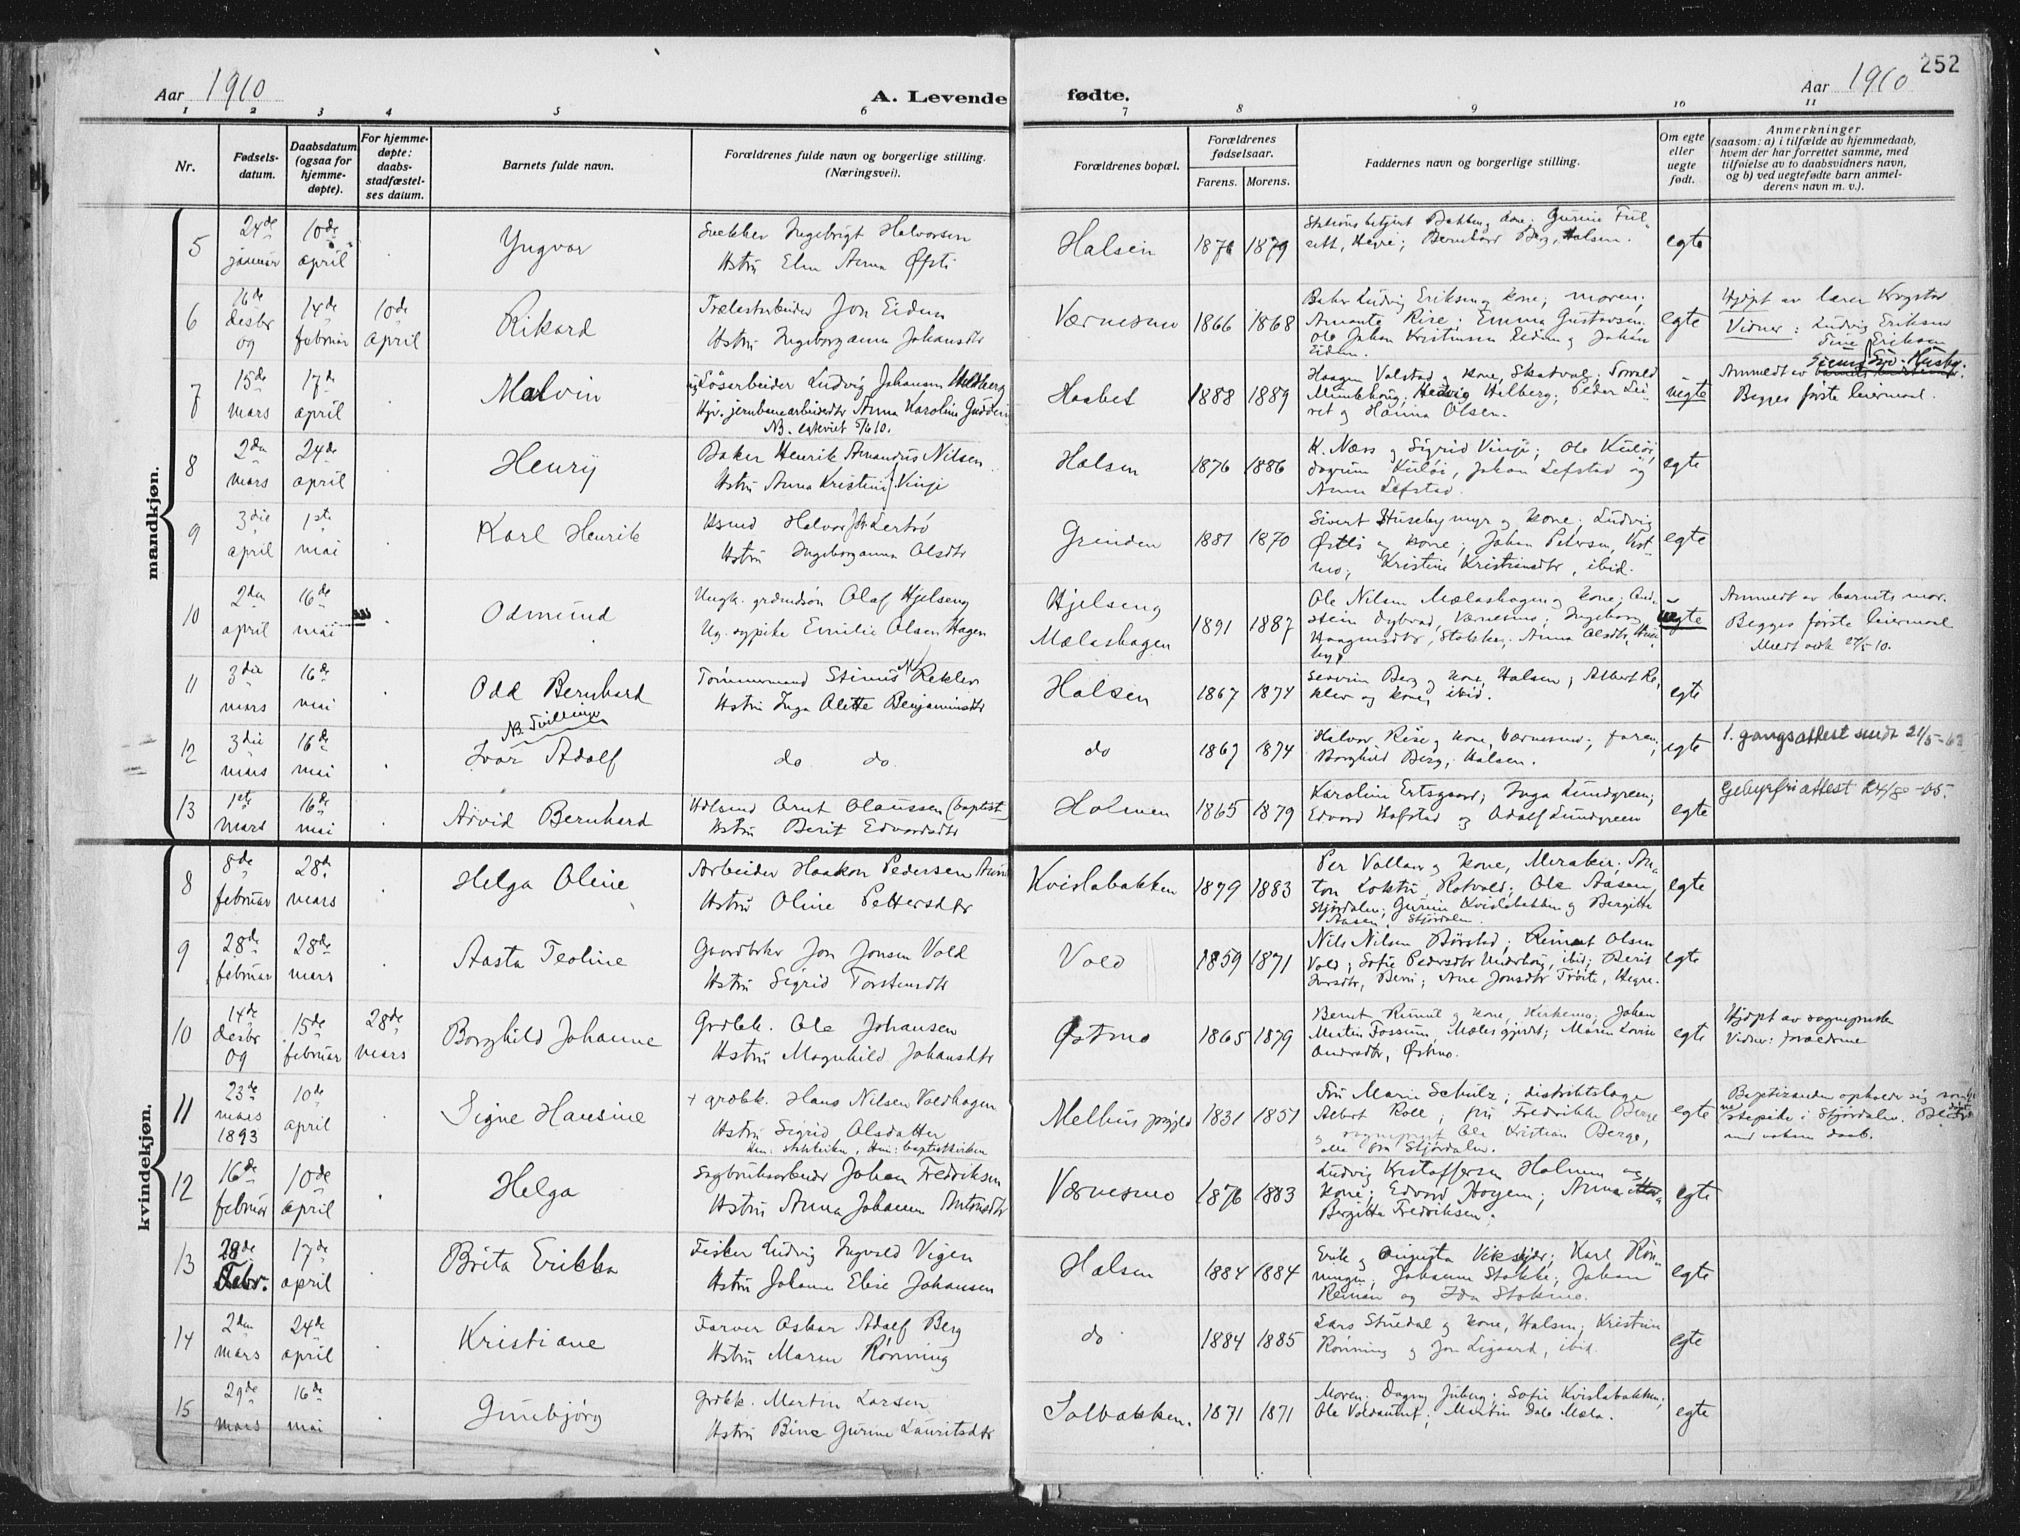 252
Aar 1910
A. Levende fødte.
Aar 1910
1 2 3 4 5 6 7 8 9 10 11
Nr.
Fødsels-
datum.
Daabsdatum
(ogsaa for
hjemme-
døpte).
For hjemme-
døpte:
daabs-
stadfæstel-
ses datum.
Barnets fulde navn.
Forældrenes fulde navn og borgerlige stilling.
(Næringsvei).
Forældrenes bopæl.
Forældrenes
fødselsaar.
Farens. Morens.
Faddernes navn og borgerlige stilling.
Om egte
eller
uegte
født.
Anmerkninger
(saasom: a) i tilfælde av hjemmedaab,
hvem der har forrettet samme, med
tilføielse av to daabsvidners navn,
og b) ved uegtefødte barn anmel-
derens navn m. v.).
mandkjøn.
5
24de
januar
10de
april
Yngvar
Snekker Ingebrigt Halvorsen
Hstru Elen Anna Øfsti
Halsen
1876 1879
egte
6
16de
desbr
09
14de
februar
10de
april
Rikard
Hstru Ingeborganna Johansdtr
Værnesmo
1866 1868
Baker Ludvig Eriksen og kone; moren;
Rise; Emma Gustavsen
Ole Johan Kristiansen Eidum og Johan
Eidum.
egte
Hjdpt av lærer Krogstad
Vidner: Ludvig Eriksen
Eriksen
7
15de
mars
17de
april
Malvin
Løsarbeider Ludvig Johansen
jernbanearbeidedtr Anna Karoline
NB.
Haabet
1888 1889
og Hanna Olsen.
uegte
Anmeldt av
Begges første leiermaal.
8
2den
mars
24de
april
Henry
Baker Henrik Amandus Nilsen
Hstru Anna Kristine Vinje
Halsen
1876 1886
K. Næss og Sigrid Vinje; Ole Kuløi,
Dagrun Kuløi, Johan Lefstad og
Anna Lefstad.
egte
9
3die
april
1ste
mai
Karl Henrik
Hsmd Halvor
Hstru Ingeborganna Olsdtr
Grinden
1881 1870
Sivert Husebymyr og kone; Ludvig
og kone; Johan Petersen,
Kristine Kristiansdtr, ibid.
egte
10
2den
april
16de
mai
Odmund
Ungk. grdmdsøn Olaf Hjelseng
Ug. sypike Emilie Olsen Hagen
Hjelseng
Mælashagen
1891 1887
Ole Nilsen Mælashagen og kone;
Værnesmo; Ingeborg
Anna Olsdtr,
uegte
Anmeldt av barnets mor.
Begges første leiermaal
11
3die
mars
16de
mai
Odd Bernhard
NB. Tvillinger
Tømmermand Stinus Reklev
Hstru Inga Olette Benjaminsdtr
Halsen
1867 1874
Severin Berg og kone, Halsen; Albert Re-
klev og kone, ibid.
egte
12
3die
mars
16de
mai
Ivar Adolf
do do.
do
1867 1874
Halvor Rise og kone, Værnesmo; faren;
Borghild Berg, Halsen.
egte
1. gangsattest sendt 21/5-63
13
1ste
mars
16de
mai
Arvid Bernhard
Arnt Olaussen (baptist
Hstru Berit Edvardsdtr
Holmen
1865 1879
Karoline Ertsgaard; Inga Lundgreen;
Edvard Hofstad og Adolf Lundgreen
egte
Gebyrfri attest
kvindekjøn.
8
8de
februar
28de
mars
Helga Oline
Arbeider Haakon Pedersen
Hstru Oline Pettersdtr
Kvislabakken
1879 1883
Per Vollan og kone, Meraker;
Ole Aasen,
Stjørdalen; Gurine Kvislabakken og Bergitte
Aasen, Stjørdalen.
egte
9
28de
februar
28de
mars
Aasta Teoline
Gaardbrkr Jon Jonsen Vold
Hstru Sigrid Torstensdtr
Vold
1859 1871
Nils Nilsen Børstad; Olsen
Vold; Sofie Pedersdtr ibid; Berit
Ivarsdtr, Ane Jonsdtr Trøite, Hegre.
egte
10
14de
desbr
09
15de
februar
28de
mars
Borghild Johanne
Grdbk. Ole Johansen
Hstru Magnhild Johansdtr
Østmo
1865 1879
og kone, Johan
Martin Fossum, Maren Lovise
Andreasdtr, Østmo.
egte
Hjdpt av sognepresten
Vidner: forældrene
11
23de
mars
1893
10de
april
Signe Hansine
+ grdbk. Hans Nilsen Voldhagen
Hstru Sigrid Olsdatter
Melhus prgjeld
1831 1851
Fru Marie Schulz; distriktslæge
Albert fru Fredrikke Berge
og sogneprest Ole Kristian Berge,
alle fra Stjørdalen.
egte
Baptizanden opholder sig som
i Stjørdalen.
ved voksen daab.
12
16de
februar
10de
april
Helga
Sagbruksarbeider Johan Fredriksen
Hstru Anna Johanna Antonsdtr
Værnesmo
1876 1883
Ludvig Kristoffersen Holmen og
kone; Edvard Hogem; Anna
Bergitte Fredriksen.
egte
13
28de
Febr.
17de
april
Brita Erikka
Fisker Ludvig Ingvald Vigen
Hstru Johanna Elise Johansen
Halsen
1884 1884
Erik og Augusta Karl Røn-
ningen; Johanna Stokke; Johan
og Ida Stokmo.
egte
14
2den
mars
24de
april
Kristiane
Farver Oskar Adolf Berg
Hstru Maren Rønning
do
1884 1885
Lars og kone, Halsen; Kristian
Rønning og Jon ibid.
egte
15
29de
mars
16de
mai
Gunbjørg
Grdbk. Martin Larsen
Hstru Bine Gurine Lauritsdtr
Solbakken.
1871 1871
Moren; Dagny Juberg; Sofie Kvislabakken;
Ole Martin Dale Mæla.
egte